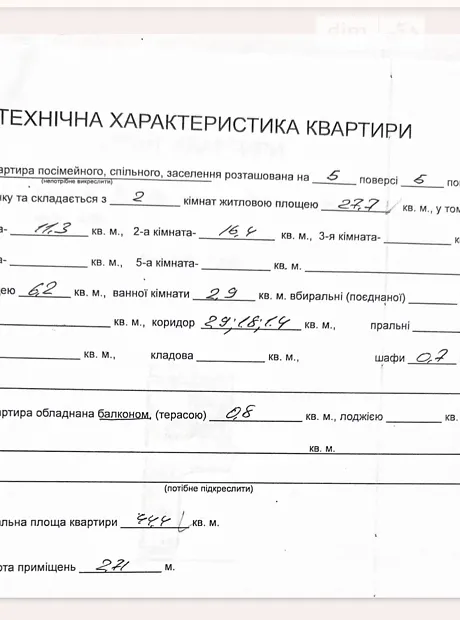 ТЕХНІЧНА ХАРАКТЕРИСТИКА КВАРТИРИ
артира посімейного, спільного, заселення розташована на 5 поверсі 5 по
(непотрібне викреслити)
нку та складається з 2 кімнат житловою площею 27,7 кв. м., у том
а- 11,3 кв. м., 2-а кімната- 16,4 кв. м., 3-я кімната- к
а- кв. м., 5-а кімната- кв. м.
цею 6,2 кв. м., ванної кімнати 2,9 кв. м. вбиральні (поєднаної)
кв. м., коридор 2,9; 1,8; 1,4 кв. м., пральні
кв. м., кладова кв. м., шафи 0,7
артира обладнана балконом, (терасою) 0,8 кв. м., лоджією кв.
кв. м.
(потібне підкреслити)
альна площа квартири 44,4 кв. м.
ота приміщень 2,71 м.